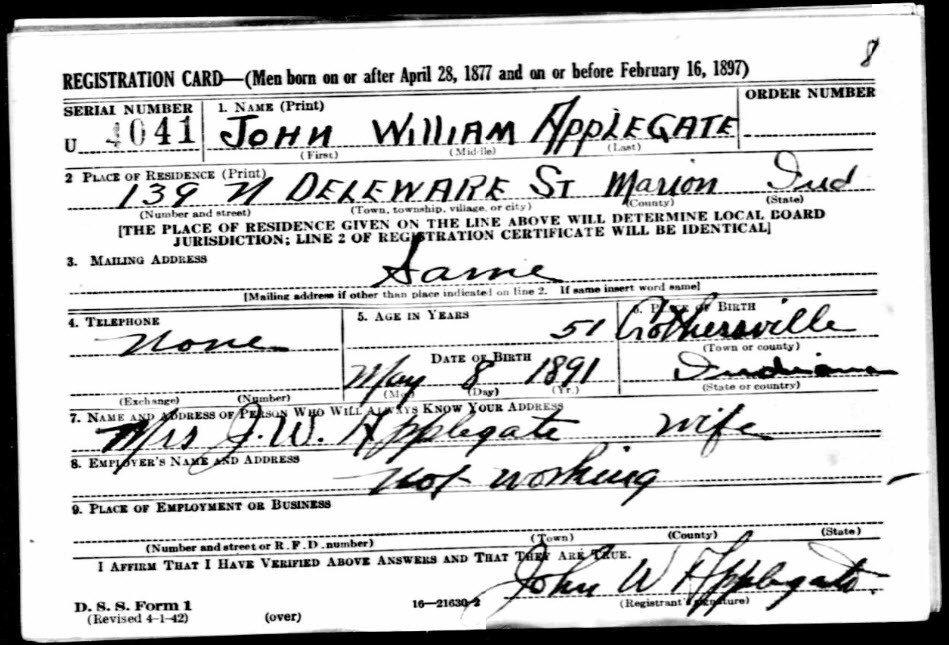 8
REGISTRATION CARD—(Men born on or after April 28, 1877 and on or before February 16, 1897)
SERIAL NUMBER 1. NAME (Print) ORDER NUMBER
U 4041 JOHN WILLIAM APPLEGATE
(First) (Middle) (Last)
2 PLACE OF RESIDENCE (Print)
139 N DELEWARE ST Marion Ind
(Number and street) (Town, township, village, or city) (County) (State)
[THE PLACE OF RESIDENCE GIVEN ON THE LINE ABOVE WILL DETERMINE LOCAL BOARD
JURISDICTION; LINE 2 OF REGISTRATION CERTIFICATE WILL BE IDENTICAL]
3. MAILING ADDRESS
Same
[Mailing address if other than place indicated on line 2. If same insert word same]
4. TELEPHONE 5. AGE IN YEARS 6. PLACE OF BIRTH
None 51 Crothersville
(Town or county)
DATE OF BIRTH
May 8 1891 Indiana
(Mo.) (Day) (Yr.) (State or country)
(Exchange) (Number)
7. NAME AND ADDRESS OF PERSON WHO WILL ALWAYS KNOW YOUR ADDRESS
Mrs J.W. Applegate wife
8. EMPLOYER'S NAME AND ADDRESS
not working
9. PLACE OF EMPLOYMENT OR BUSINESS
(Number and street or R. F. D. number) (Town) (County) (State)
I AFFIRM THAT I HAVE VERIFIED ABOVE ANSWERS AND THAT THEY ARE TRUE.
John W Applegate.
D. S. S. Form 1 16—21630-2 (Registrant's signature)
(Revised 4-1-42) (over)